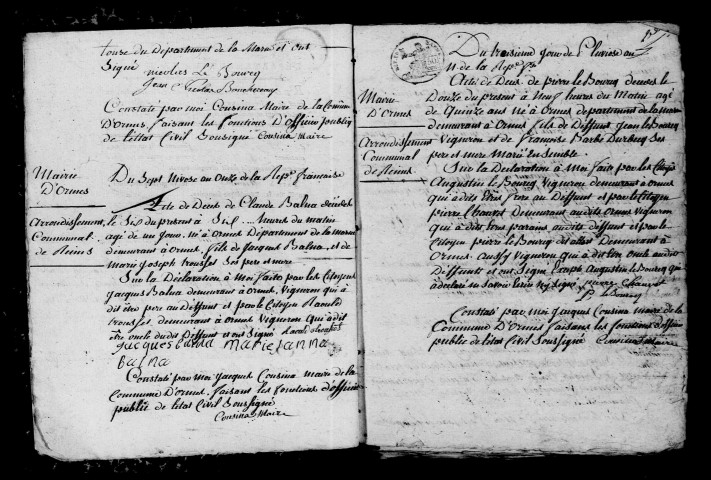 toure du Departement de la Marne et ont
Signé
nicolas Le Bourcq
Jean Nicolas
Constaté par moi Cousina Maire de la Commune
D'Ormes, faisant les fonctions D'officier public
de l'état Civil Soussigné Cousina Maire
Mairie
D'Ormes
Arrondissement
Communal
de Reims
Du Sept Nivose an Onze de la Repe francaise
Acte de Deces de Claude Balna décédé
le Six du présent à Six heures du matin
agé de un jour, né à Ormes Departement de la marne
demeurant à Ormes, fils de Jacques Balna, et de
marie joseph trousset Ses pere et mere
Sur la Déclaration à Moi faite par les Citoyens
Jacques Balna demeurant à Ormes, Vigneron qui à
dit être pere au Deffunt et par le Citoyen
trousset, demeurant à Ormes Vigneron qui à dit
être oncle dudit Deffunt et ont Signé
jacques balna marie anna
balna
Constaté par Moi jacques Cousina maire de la
Commune D'Ormes, faisant les fonctions d'officier
public de l'état Civil Soussigné
Cousina Maire
Du troisieme jour de Pluviose an
11 de la Repe fse
Mairie
D'Ormes
Arrondissement
Communal
de Reims
Acte de Deces de pierre le Bourcq décédé le
Douze du présent à Neuf heures du Matin agé
de Quinze ans né à Ormes departement de la marne
demeurant à Ormes fils de Deffunt Jean le Bourcq
Vigneron et de francoise Barbe Ses
pere et mere Marié Ensemble.
Sur la Déclaration à Moi faite par les Citoyens
Augustin le Bourcq Vigneron demeurant à Ormes
qui à dit Etre frere au Deffunt et par le Citoyen
pierre Chauvet Demeurant audit Ormes Vigneron
qui à dit Etre parent audit deffunt et par le
Citoyen pierre le Bourcq Demeurant à
Ormes aussy Vigneron qui à dit Etre oncle audit
Deffunt et ont Signé Excepté Augustin le Bourcq qui
à déclaré ne Savoir Ecrire ny Signer pierre Chauvet
P le Bourcq
Constaté par moi Jacques Cousina maire de la
Commune D'Ormes faisant les fonctions d'officier
public de l'état Civil Soussigné Cousina Maire